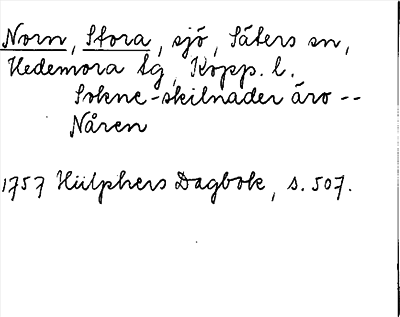 Norn, Stora, sjö, Säters sn,
Hedemora tg, Kopp. l.
Sokne-skilnader äro --
Nåren
1757 Hülphers Dagbok, s. 507.